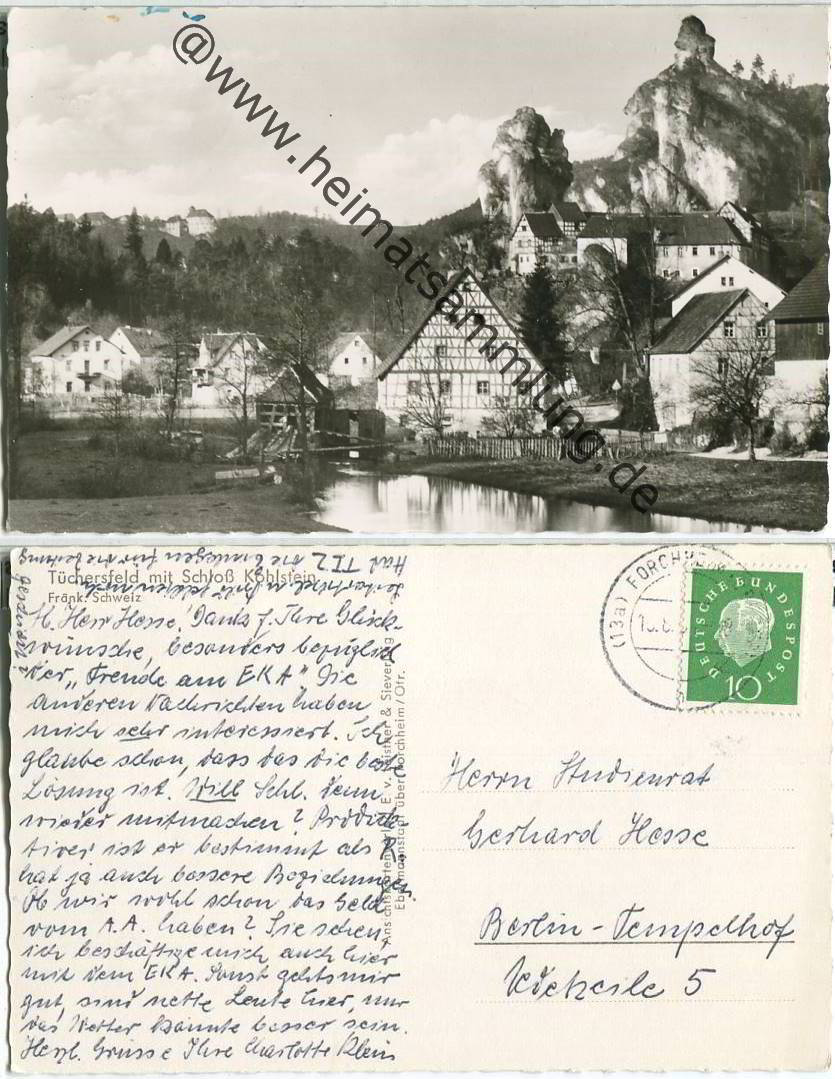 @www.heimatsammlung.de
Tüchersfeld mit Schloß Kohlstein
Fränk. Schweiz
H. Herr Hesse, Dank f. Ihre Glück-
wünsche, besonders bezüglich
der „Freude am EKA" Die
anderen Nachrichten haben
mich sehr interessiert. Ich
glaube schon, dass das die beste
Lösung ist. Will Schl. denn
wieder mitmachen? Produk-
tiver ist er bestimmt als R.,
hat ja auch bessere Beziehungen.
Ob wir wohl schon das Geld
vom A.A. haben? Sie sehen,
ich beschäftige mich auch hier
mit dem EKA. Sonst gehts mir
gut, sind nette Leute hier, nur
das Wetter könnte besser sein.
Herzl. Grüsse Ihre Charlotte Klein
Hat TIZ die Einlagen für die Zeitung
gedruckt?
Ansichtskartenverlag E. v. Leistner & Sievering
Ebermannstadt über Forchheim/Ofr.
(13a) FORCHHEIM
DEUTSCHE BUNDESPOST
10
Herrn Studienrat
Gerhard Hesse
Berlin-Tempelhof
5